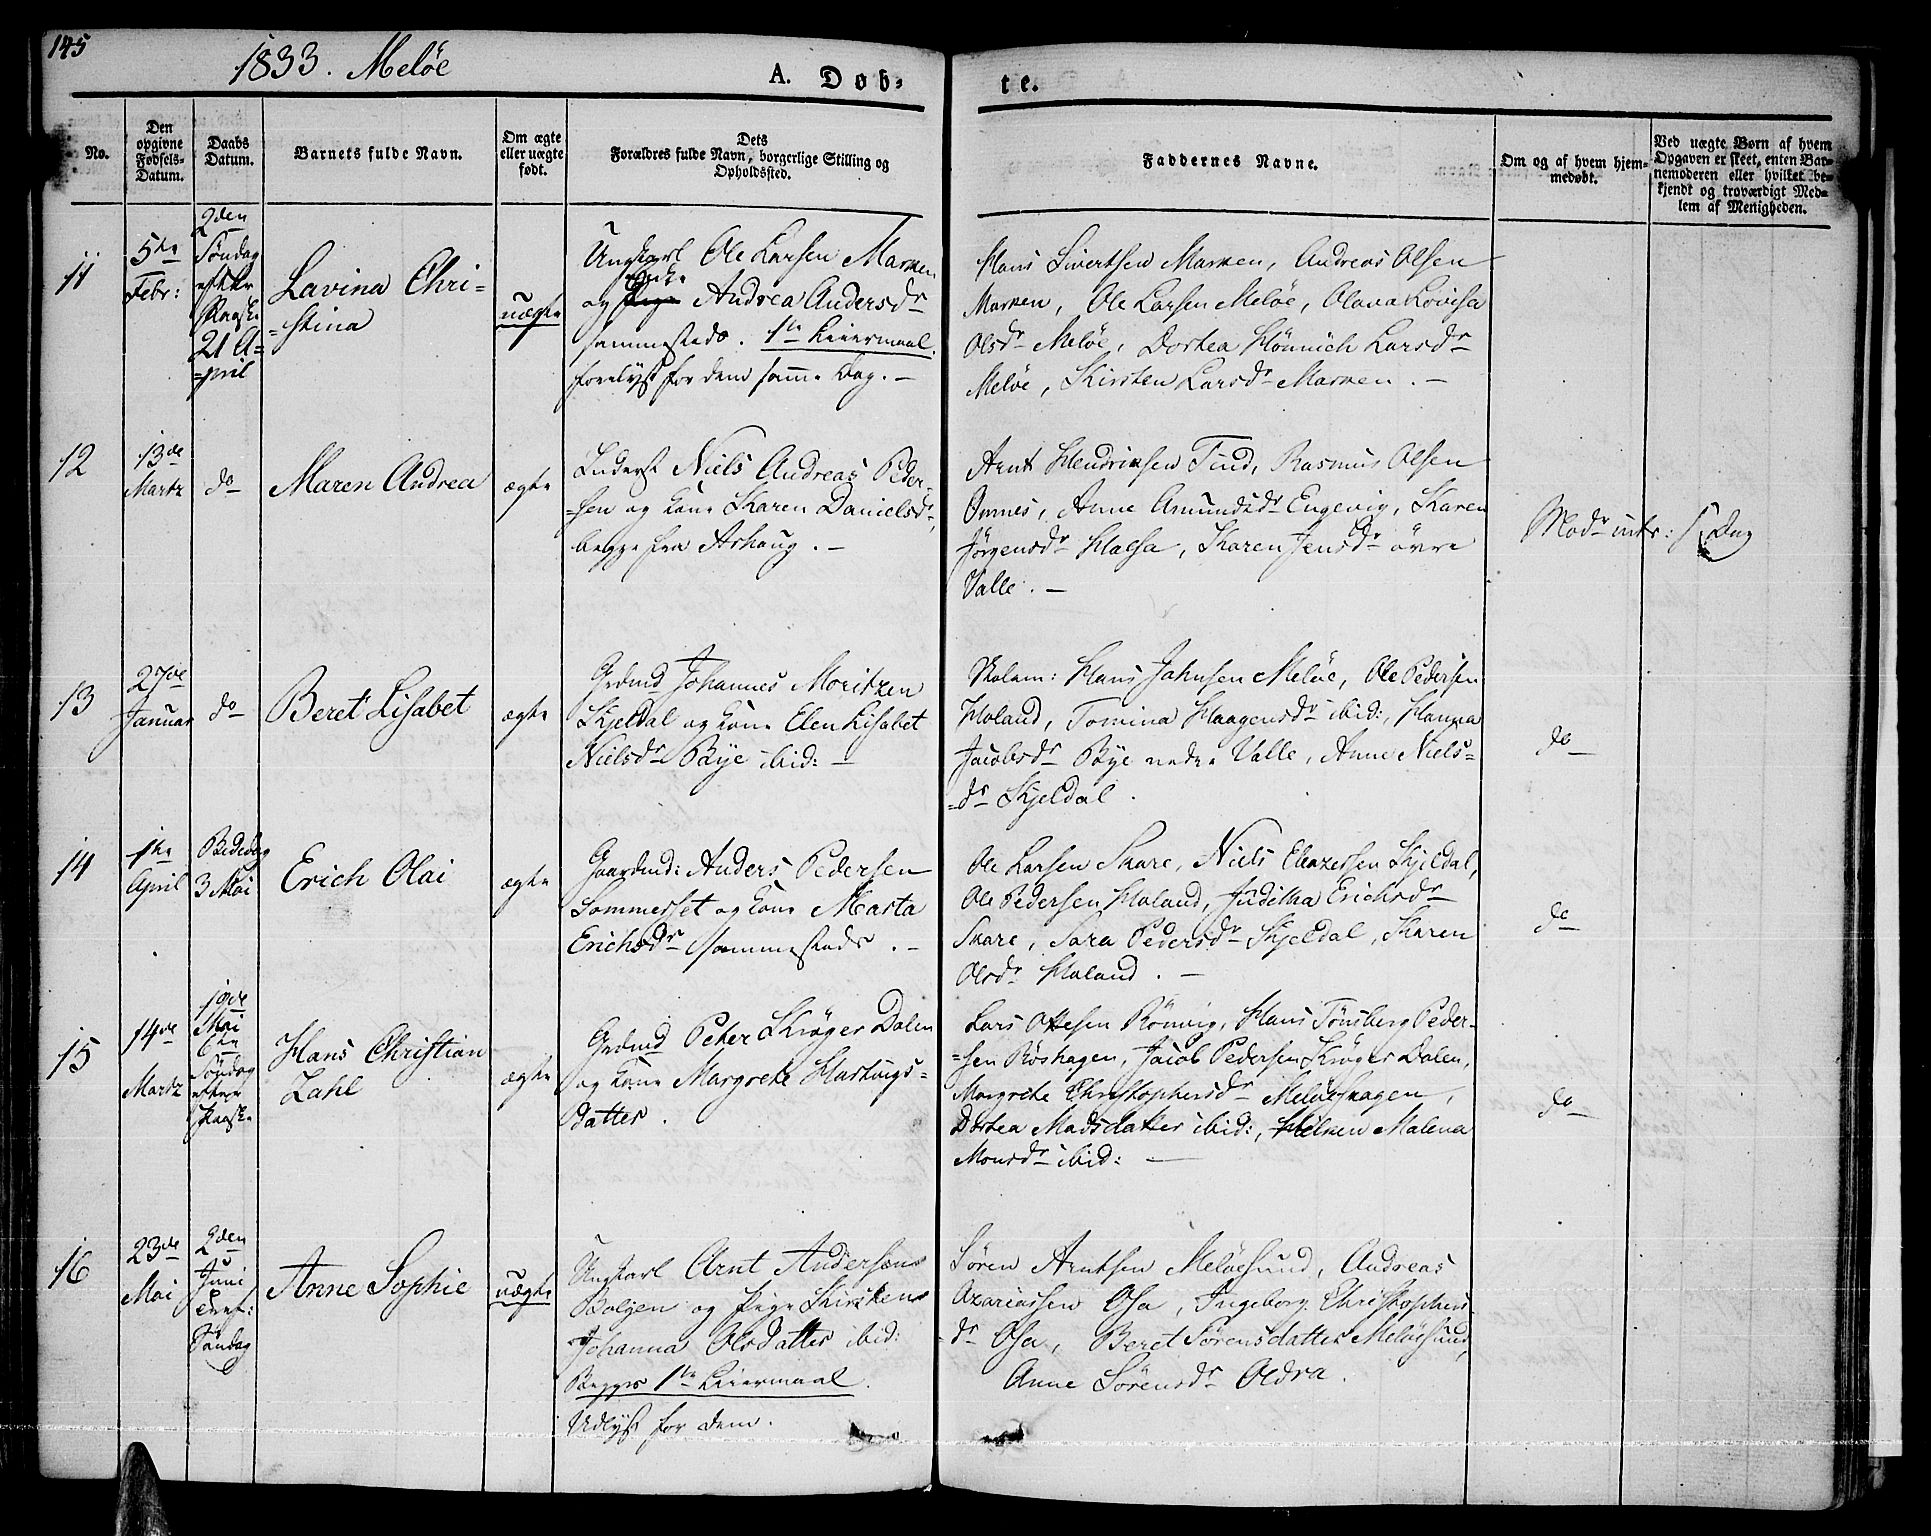 145
1833. Meløe
A. Døb-
te.
No.
Den
opgivne
Fødsels-
Datum.
Daabs
Datum.
Barnets fulde Navn.
Om ægte
eller uægte
født.
Dets
Forældres fulde Navn, borgerlige Stilling og
Opholdssted.
Faddernes Navne.
Om og af hvem hjem-
medøbt.
Ved uægte Børn af hvem
Opgaven er skeet, enten Bar-
nemoderen eller hvilket be-
kjendt og troværdigt Med-
lem af Menigheden.
11
5te
Febr:
2den
Søndag
efter
Paaske
21 A-
=pril
Lavina Chri-
=stina
uægte
Ungkarl Ole Larsen Marken
Enke
og Pige Andrea Andersdr
sammesteds. 1te Leiermaal.
forelyst for dem samme Dag. -
Hans Sivertsen Marken, Andreas Olsen
Marken, Ole Larsen Meløe, Olava Lovisa
Olsdr Meløe, Dortea Hönnich Larsdr
Meløe, Kirsten Larsdr Marken. -
12
13de
Martz
do
Maren Andrea
ægte
Inderst Niels Andreas Peder-
=sen og Kone Karen Danielsdr,
begge fra Ashaug. -
Arnt Hendriksen Tind, Rasmus Olsen
Ørnes, Anne Amundsdr Engevig, Karen
Jörgensdr Halsa, Karen Jensdr övre
Valle. -
Modr intr: s. Dag
13
27de
Januar
do
Beret Lisabet
ægte
Grdmd Johannes Moritzen
Kjeldal og Kone Elen Lisabet
Nielsdr Bye ibid: -
Skolem: Hans Jahnsen Meløe, Ole Pedersen
Holand, Tomina Haagensdr ibid:, Hanna
Jacobsdr Bye nedre Valle, Anne Niels-
=dr Kjeldal.
do
14
1te
April
Bededag
3 Mai
Erich Olai
ægte
Gaardmd: Anders Pedersen
Sommerset og Kone Marta
Erichsdr sammesteds. -
Ole Larsen Skare, Niels Eleazersen Kjeldal,
Ole Pedersen Holand, Juditha Erichsdr
Skare, Sara Pedersdr Kjeldal, Karen
Olsdr Holand. -
do
15
14de
Martz
19de
Mai
6te
Søndag
efter
Paaske
Hans Christian
Zahl
ægte
Grdmd Peter Krøger Dalen
og Kone Margrete Hartvigs-
datter.
Lars Ottesen Rönvig, Hans Tönsberg Peder-
=sen Röshagen, Jacob Pedersen Kröger Dalen,
Margrete Christophersdr Meløeshagen,
Dortea Madsdatter ibid:, Hilken Malena
Monsdr ibid: -
do
16
23de
Mai
2den
Juni
Tref:
Søndag
Anne Sophie
uægte
Ungkarl Arnt Andersen
Boljen og Pige Kirsten
Johanna Olsdatter ibid:
Begges 1te Leiermaal.
Udlyst for dem.
Sören Arntsen Meløesund, Andreas
Azariassen Osa, Ingeborg Christophers-
=dr Osa, Beret Sörensdatter Meløesund,
Anne Sörensdr Oldra.